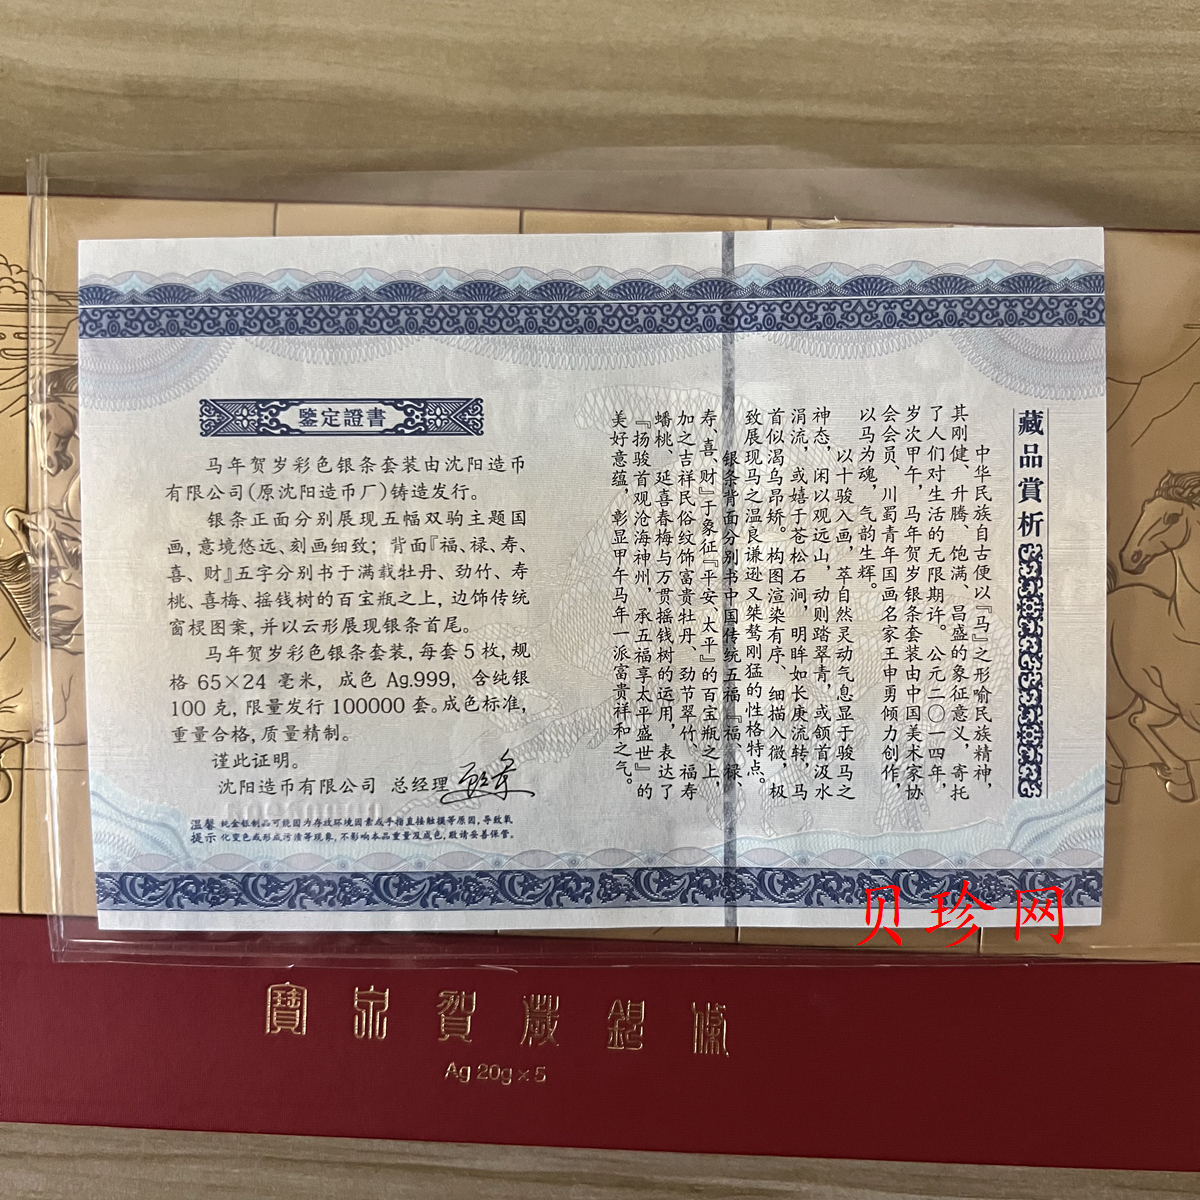 鉴定證書
马年贺岁彩色银条套装由沈阳造币
有限公司(原沈阳造币厂)铸造发行。
银条正面分别展现五幅双驹主题国
画,意境悠远、刻画细致;背面『福、禄、寿、
喜、财』五字分别书于满载牡丹、劲竹、寿
桃、喜梅、摇钱树的百宝瓶之上,边饰传统
窗棂图案,并以云形展现银条首尾。
马年贺岁彩色银条套装,每套5枚,规
格65×24毫米,成色Ag.999,含纯银
100克,限量发行100000套。成色标准,
重量合格,质量精制。
谨此证明。
沈阳造币有限公司 总经理
温馨提示
纯金银制品可能因为存放环境因素或手指直接触摸等原因,导致氧
化变色或形成污渍等现象,不影响本品重量及成色,敬请妥善保管。
藏品赏析
中华民族自古便以『马』之形喻民族精神,
其刚健、升腾、饱满、昌盛的象征意义,寄托
了人们对生活的无限期许。公元二〇一四年,
岁次甲午,马年贺岁银条套装由中国美术家协
会会员、川蜀青年国画名家王申勇倾力创作,
以马为魂,气韵生辉。
以十骏入画,萃自然灵动气息显于骏马之
神态,闲以观远山,动则踏翠青,或颔首汲水
涓流,或嬉于苍松石涧,明眸如长庚流转,马
首似渴乌昂矫。构图渲染有序、细描入微,极
致展现马之温良谦逊又桀骜刚猛的性格特点。
银条背面分别书中国传统五福『福、禄、
寿、喜、财』于象征『平安、太平』的百宝瓶之上,
加之吉祥民俗纹饰富贵牡丹、劲节翠竹、福寿
蟠桃、延喜春梅与万贯摇钱树的运用,表达了
『扬骏首观沧海神州,承五福享太平盛世』的
美好意蕴,彰显甲午马年一派富贵祥和之气。
贝珍网
寶泉賀歲銀條
Ag 20g×5